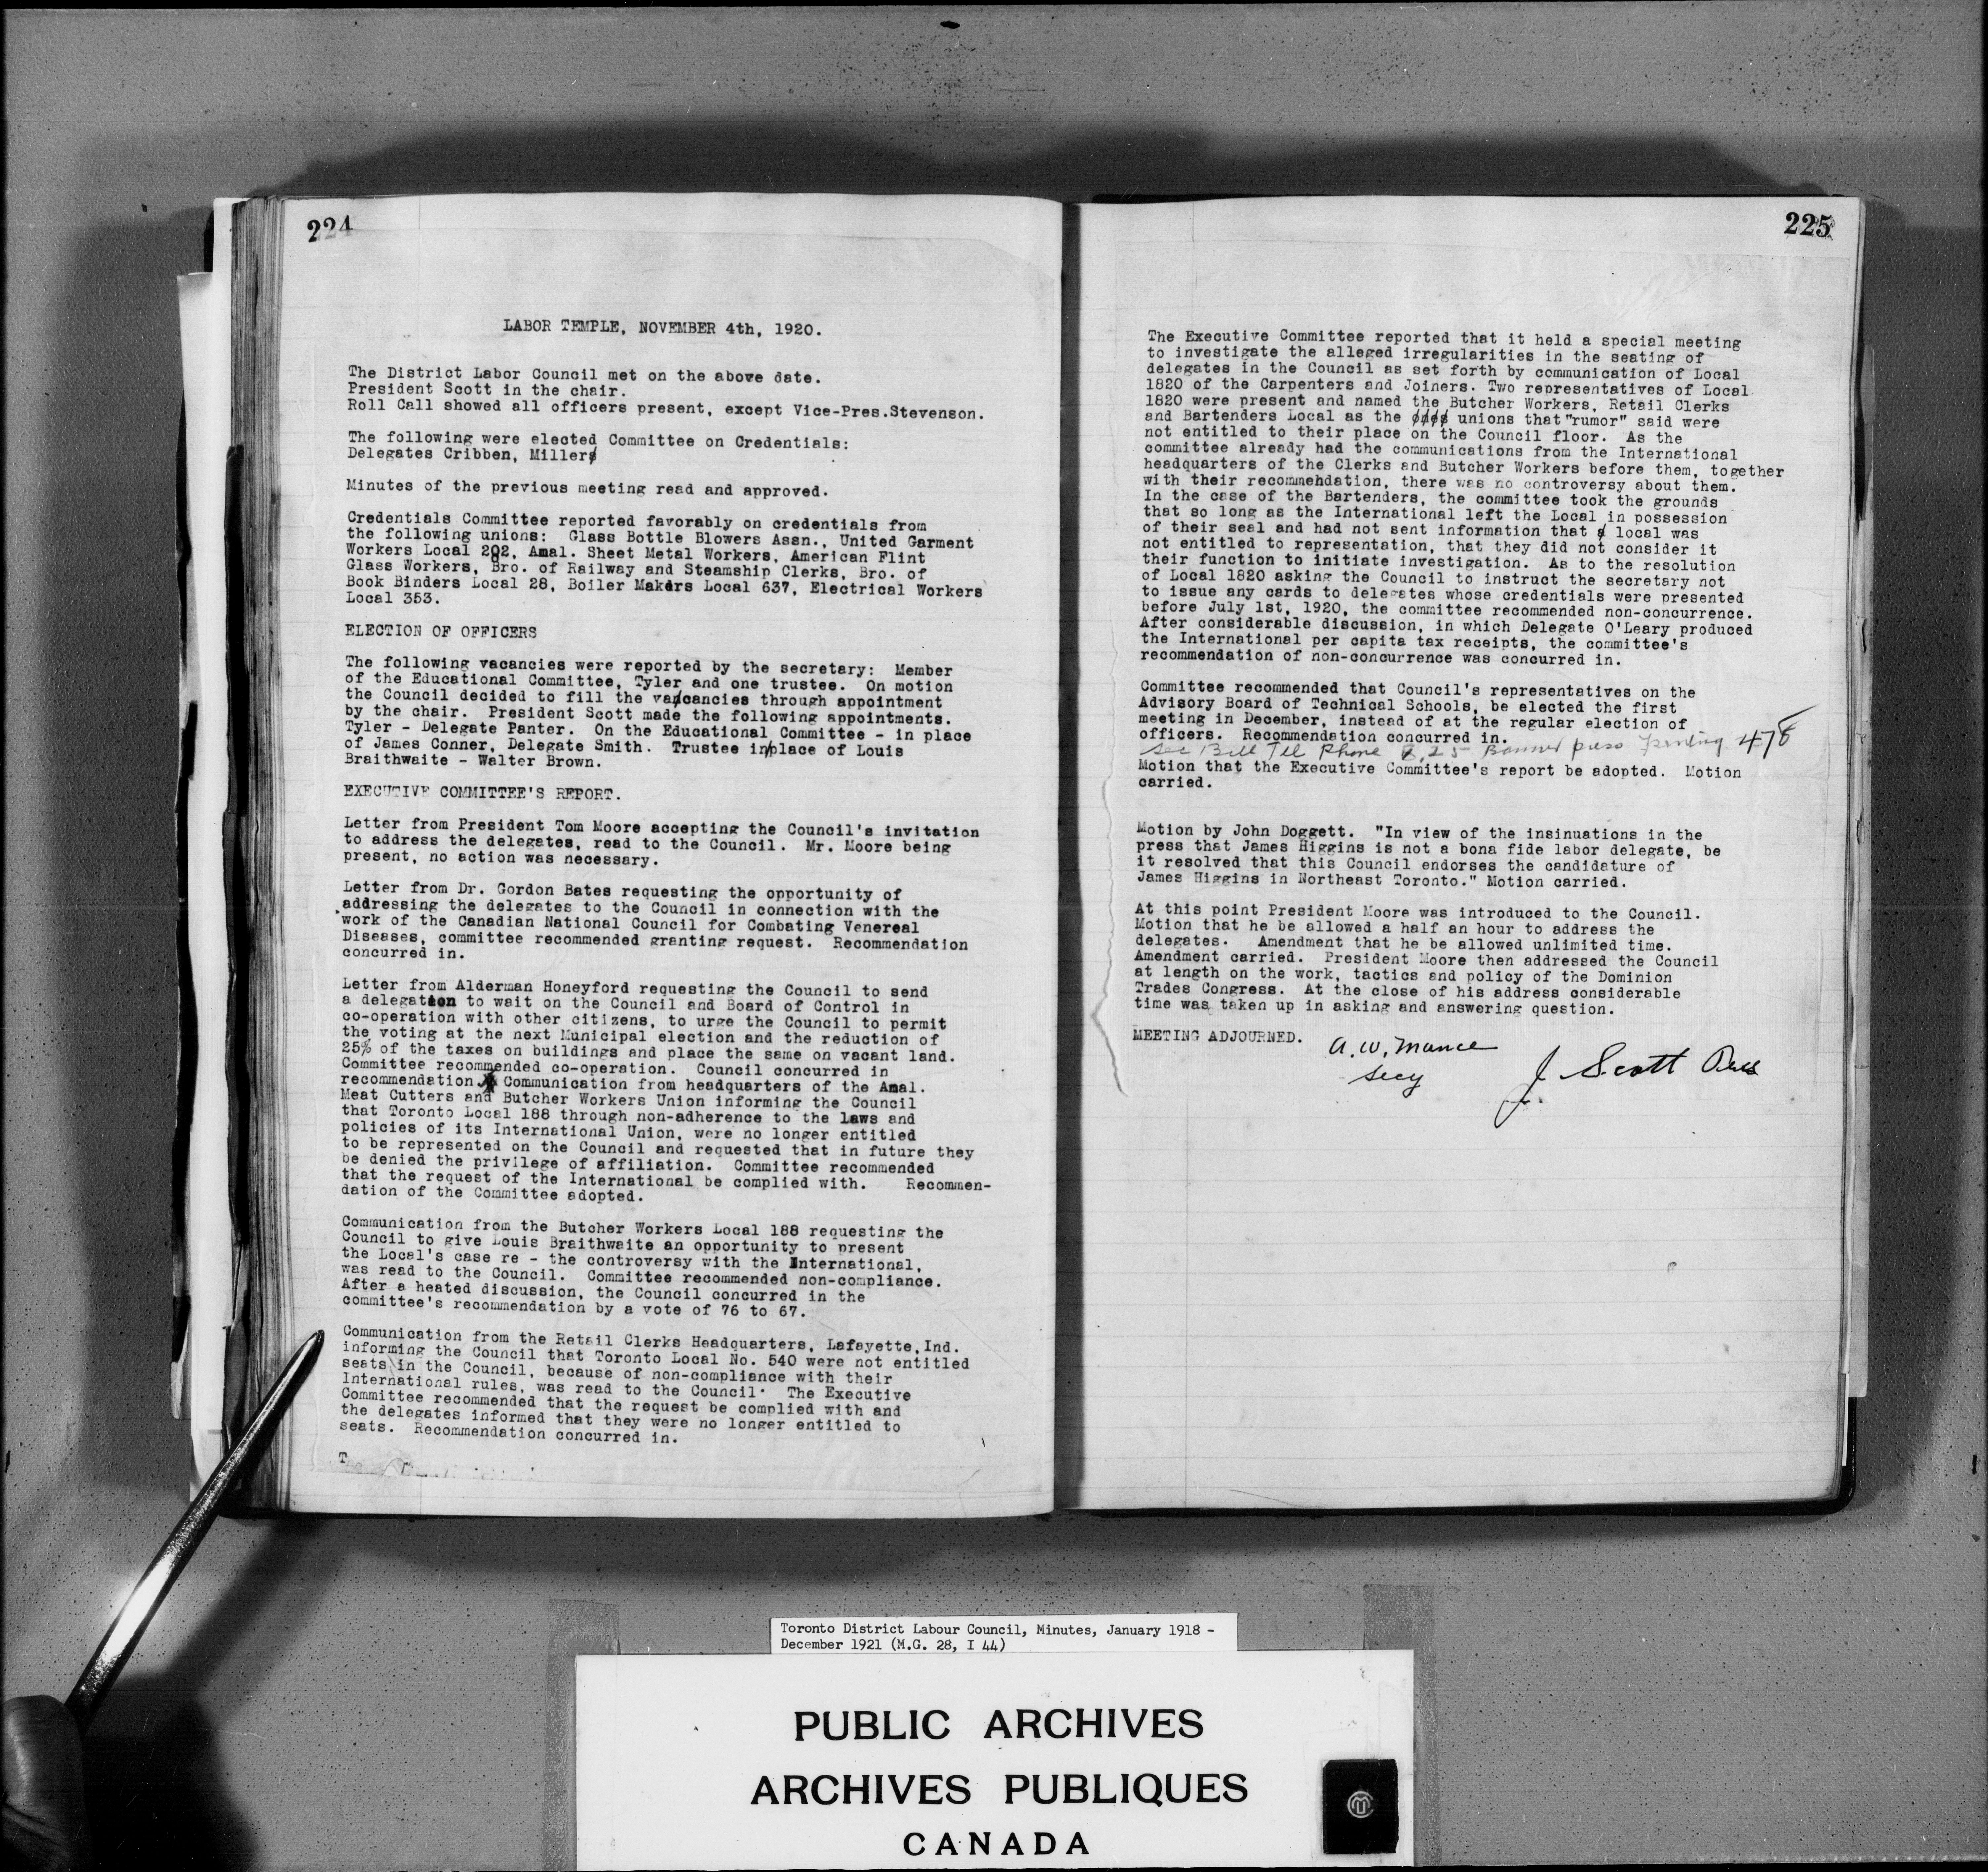 224
LABOR TEMPLE, NOVEMBER 4th, 1920.
The District Labor Council met on the above date.
President Scott in the chair.
Roll Call showed all officers present, except Vice-Pres.Stevenson.
The following were elected Committee on Credentials:
Delegates Cribben, Miller
Minutes of the previous meeting read and approved.
Credentials Committee reported favorably on credentials from
the following unions: Glass Bottle Blowers Assn., United Garment
Workers Local 202, Amal. Sheet Metal Workers, American Flint
Glass Workers, Bro. of Railway and Steamship Clerks, Bro. of
Book Binders Local 28, Boiler Makers Local 637, Electrical Workers
Local 353.
ELECTION OF OFFICERS
The following vacancies were reported by the secretary: Member
of the Educational Committee, Tyler and one trustee. On motion
the Council decided to fill the vacancies through appointment
by the chair. President Scott made the following appointments.
Tyler - Delegate Panter. On the Educational Committee - in place
of James Conner, Delegate Smith. Trustee in/place of Louis
Braithwaite - Walter Brown.
EXECUTIVE COMMITTEE'S REPORT.
Letter from President Tom Moore accepting the Council's invitation
to address the delegates, read to the Council. Mr. Moore being
present, no action was necessary.
Letter from Dr. Gordon Bates requesting the opportunity of
addressing the delegates to the Council in connection with the
work of the Canadian National Council for Combating Venereal
Diseases, committee recommended granting request. Recommendation
concurred in.
Letter from Alderman Honeyford requesting the Council to send
a delegation to wait on the Council and Board of Control in
co-operation with other citizens, to urge the Council to permit
the voting at the next Municipal election and the reduction of
25% of the taxes on buildings and place the same on vacant land.
Committee recommended co-operation. Council concurred in
recommendation. Communication from headquarters of the Amal.
Meat Cutters and Butcher Workers Union informing the Council
that Toronto Local 188 through non-adherence to the laws and
policies of its International Union, were no longer entitled
to be represented on the Council and requested that in future they
be denied the privilege of affiliation. Committee recommended
that the request of the International be complied with. Recommen-
dation of the Committee adopted.
Communication from the Butcher Workers Local 188 requesting the
Council to give Louis Braithwaite an opportunity to present
the Local's case re - the controversy with the International,
was read to the Council. Committee recommended non-compliance.
After a heated discussion, the Council concurred in the
committee's recommendation by a vote of 76 to 67.
Communication from the Retail Clerks Headquarters, Lafayette,Ind.
informing the Council that Toronto Local No. 540 were not entitled
seats in the Council, because of non-compliance with their
International rules, was read to the Council. The Executive
Committee recommended that the request be complied with and
the delegates informed that they were no longer entitled to
seats. Recommendation concurred in.
225
The Executive Committee reported that it held a special meeting
to investigate the alleged irregularities in the seating of
delegates in the Council as set forth by communication of Local
1820 of the Carpenters and Joiners. Two representatives of Local
1820 were present and named the Butcher Workers, Retail Clerks
and Bartenders Local as the unions that "rumor" said were
not entitled to their place on the Council floor. As the
committee already had the communications from the International
headquarters of the Clerks and Butcher Workers before them, together
with their recommehdation, there was no controversy about them.
In the case of the Bartenders, the committee took the grounds
that so long as the International left the Local in possession
of their seal and had not sent information that local was
not entitled to representation, that they did not consider it
their function to initiate investigation. As to the resolution
of Local 1820 asking the Council to instruct the secretary not
to issue any cards to delegates whose credentials were presented
before July 1st, 1920, the committee recommended non-concurrence.
After considerable discussion, in which Delegate O'Leary produced
the International per capita tax receipts, the committee's
recommendation of non-concurrence was concurred in.
Committee recommended that Council's representatives on the
Advisory Board of Technical Schools, be elected the first
meeting in December, instead of at the regular election of
officers. Recommendation concurred in.
Bell Tel Phone Banner press Printing 478
Motion that the Executive Committee's report be adopted. Motion
carried.
Motion by John Doggett. "In view of the insinuations in the
press that James Higgins is not a bona fide labor delegate, be
it resolved that this Council endorses the candidature of
James Higgins in Northeast Toronto." Motion carried.
At this point President Moore was introduced to the Council.
Motion that he be allowed a half an hour to address the
delegates. Amendment that he be allowed unlimited time.
Amendment carried. President Moore then addressed the Council
at length on the work, tactics and policy of the Dominion
Trades Congress. At the close of his address considerable
time was taken up in asking and answering question.
MEETING ADJOURNED.
A. W. Mance
Secy
J. Scott Pres
Toronto District Labour Council, Minutes, January 1918 -
December 1921 (M.G. 28, I 44)
PUBLIC ARCHIVES
ARCHIVES PUBLIQUES
CANADA